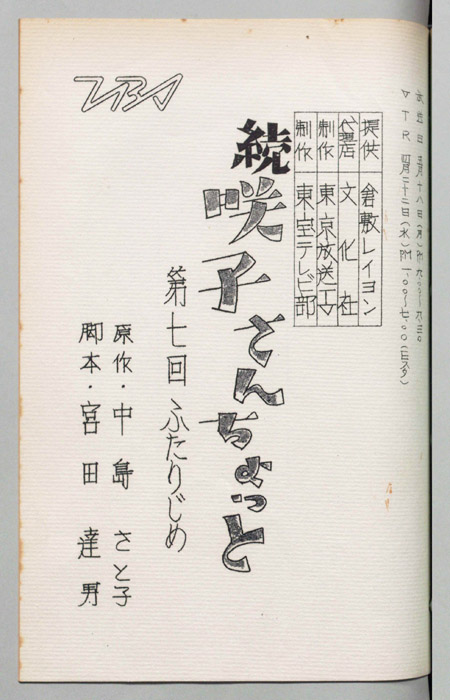 放送日 五月十八日(月)PM 九.〇〇〜九.三〇
VTR 四月二十二日(水)PM 一.〇〇〜七.〇〇(Eスタ)
提供 倉敷レイヨン
代理店 文化社
制作 東京放送
制作 東宝テレビ部
TBS
続 咲子さんちょっと
第七回 ふたりじめ
原作・中島さと子
脚本・宮田達男